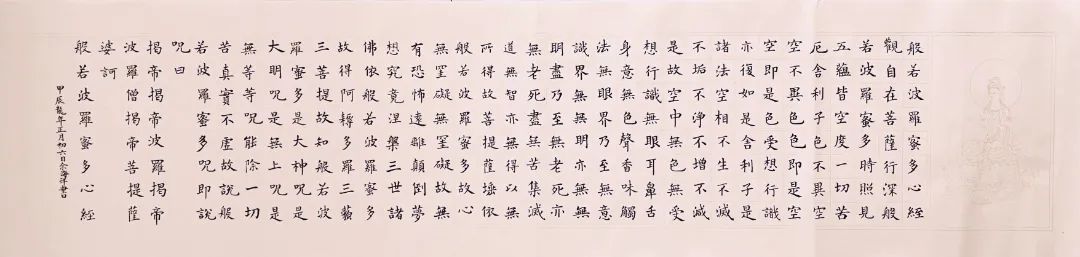 般若波羅蜜多心經
觀自在菩薩行深般
若波羅蜜多時照見
五蘊皆空度一切苦
厄舍利子色不異空
空不異色色即是空
空即是色受想行識
亦復如是舍利子是
諸法空相不生不滅
不垢不淨不增不減
是故空中無色無受
想行識無眼耳鼻舌
身意無色聲香味觸
法無眼界乃至無意
識界無無明亦無無
明盡乃至無老死亦
無老死盡無苦集滅
道無智亦無得以無
所得故菩提薩埵依
般若波羅蜜多故心
無罣礙無罣礙故無
有恐怖遠離顛倒夢
想究竟涅槃三世諸
佛依般若波羅蜜多
故得阿耨多羅三藐
三菩提故知般若波
羅蜜多是大神呪是
大明呪是無上呪是
無等等呪能除一切
苦真實不虛故說般
若波羅蜜多呪即說
呪曰
揭帝揭帝波羅揭帝
波羅僧揭帝菩提薩
婆訶
般若波羅蜜多心經
甲辰龍年正月初六日